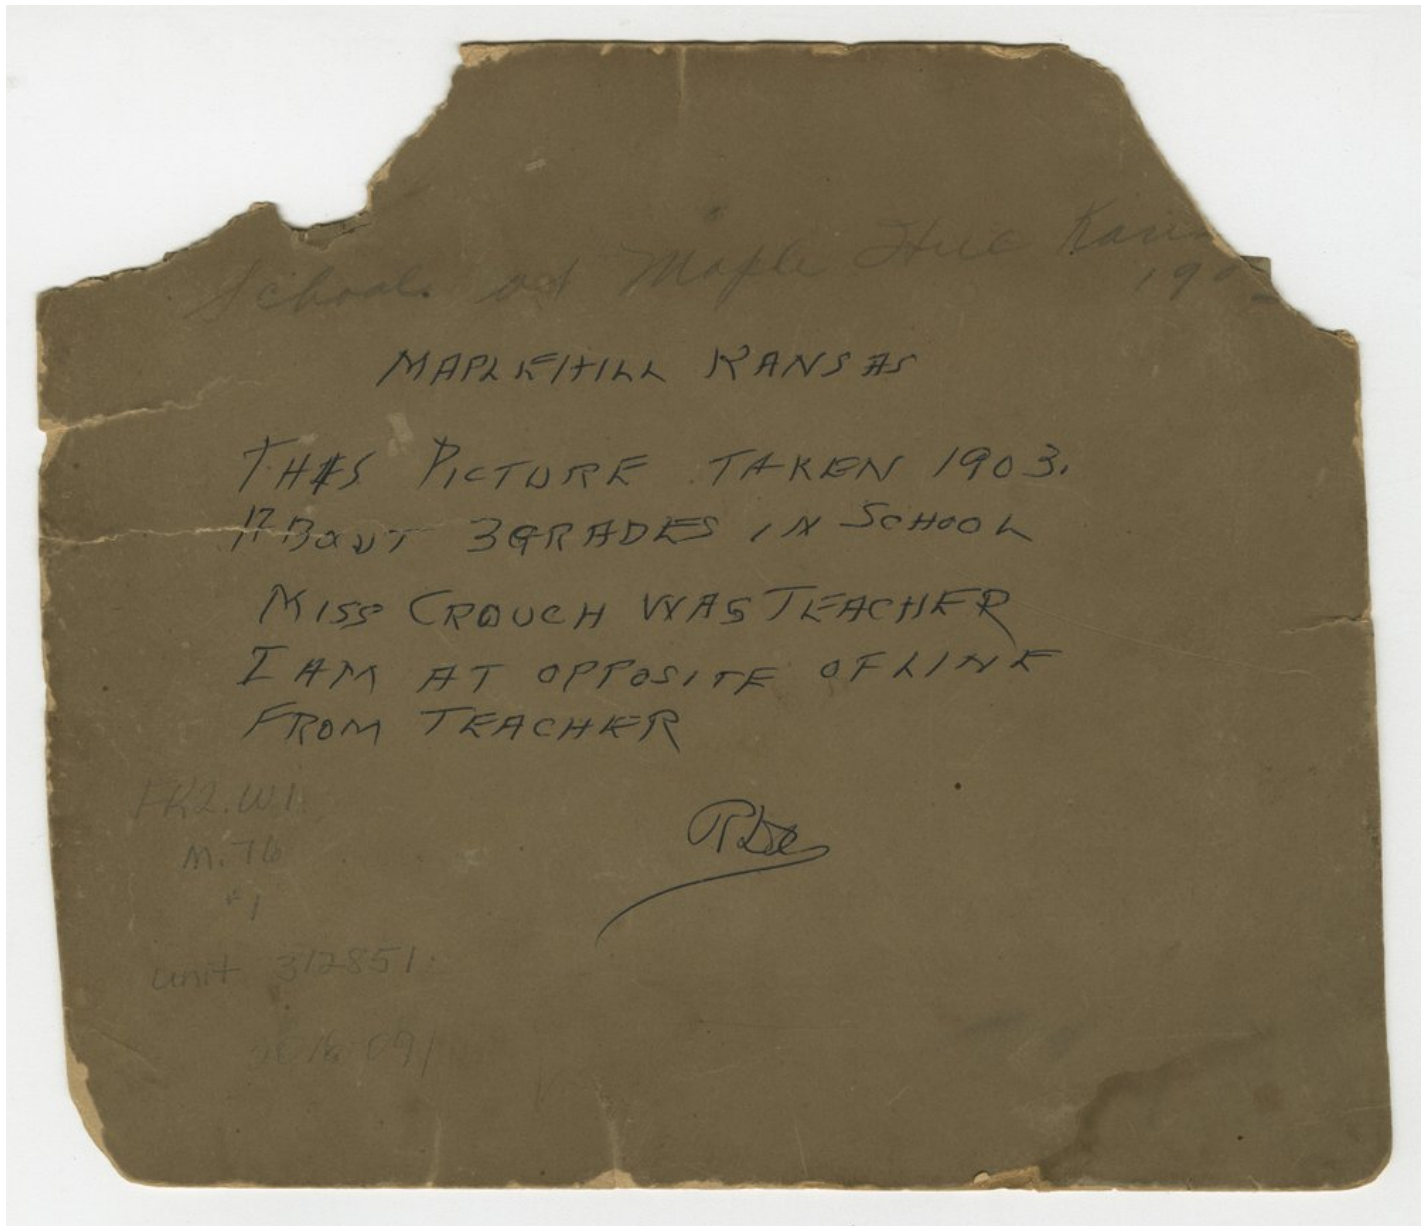 School at Maple Hill
MAPLEHILL KANSAS
THIS PICTURE TAKEN 1903.
ABOUT 3 GRADES IN SCHOOL
MISS CROUCH WAS TEACHER
I AM AT OPPOSITE OF LINE
FROM TEACHER
FK2.W1
M.76
#1
unit 312851